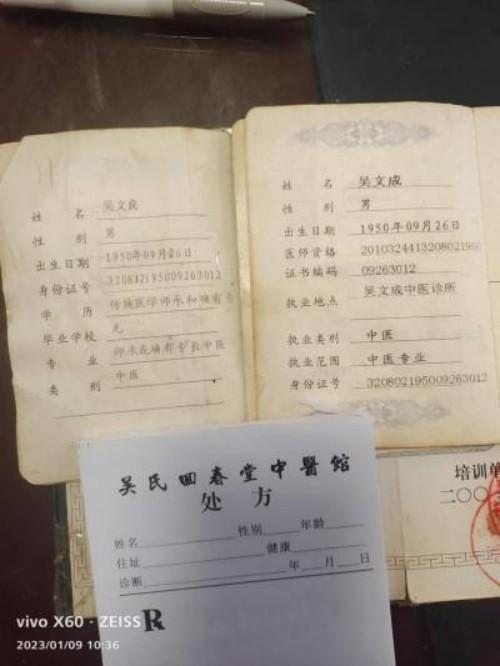 姓 名 吴文成
性 别 男
出生日期 1950年09月26日
身份证号 320821195009263012
学 历 传统医学师承和确有专
毕业学校 无
专 业 师承或确有专长中医
类 别 中医
姓 名 吴文成
性 别 男
出生日期 1950年09月26日
医师资格 2010324413208021950
证书编码 09263012
执业地点 吴文成中医诊所
执业类别 中医
执业范围 中医专业
身份证号 320802195009263012
培训单
二〇〇
吴氏回春堂中醫馆
处 方
姓名 性别 年龄
住址 健康
诊断 年 月 日
R
vivo X60 · ZEISS
2023/01/09 10:36